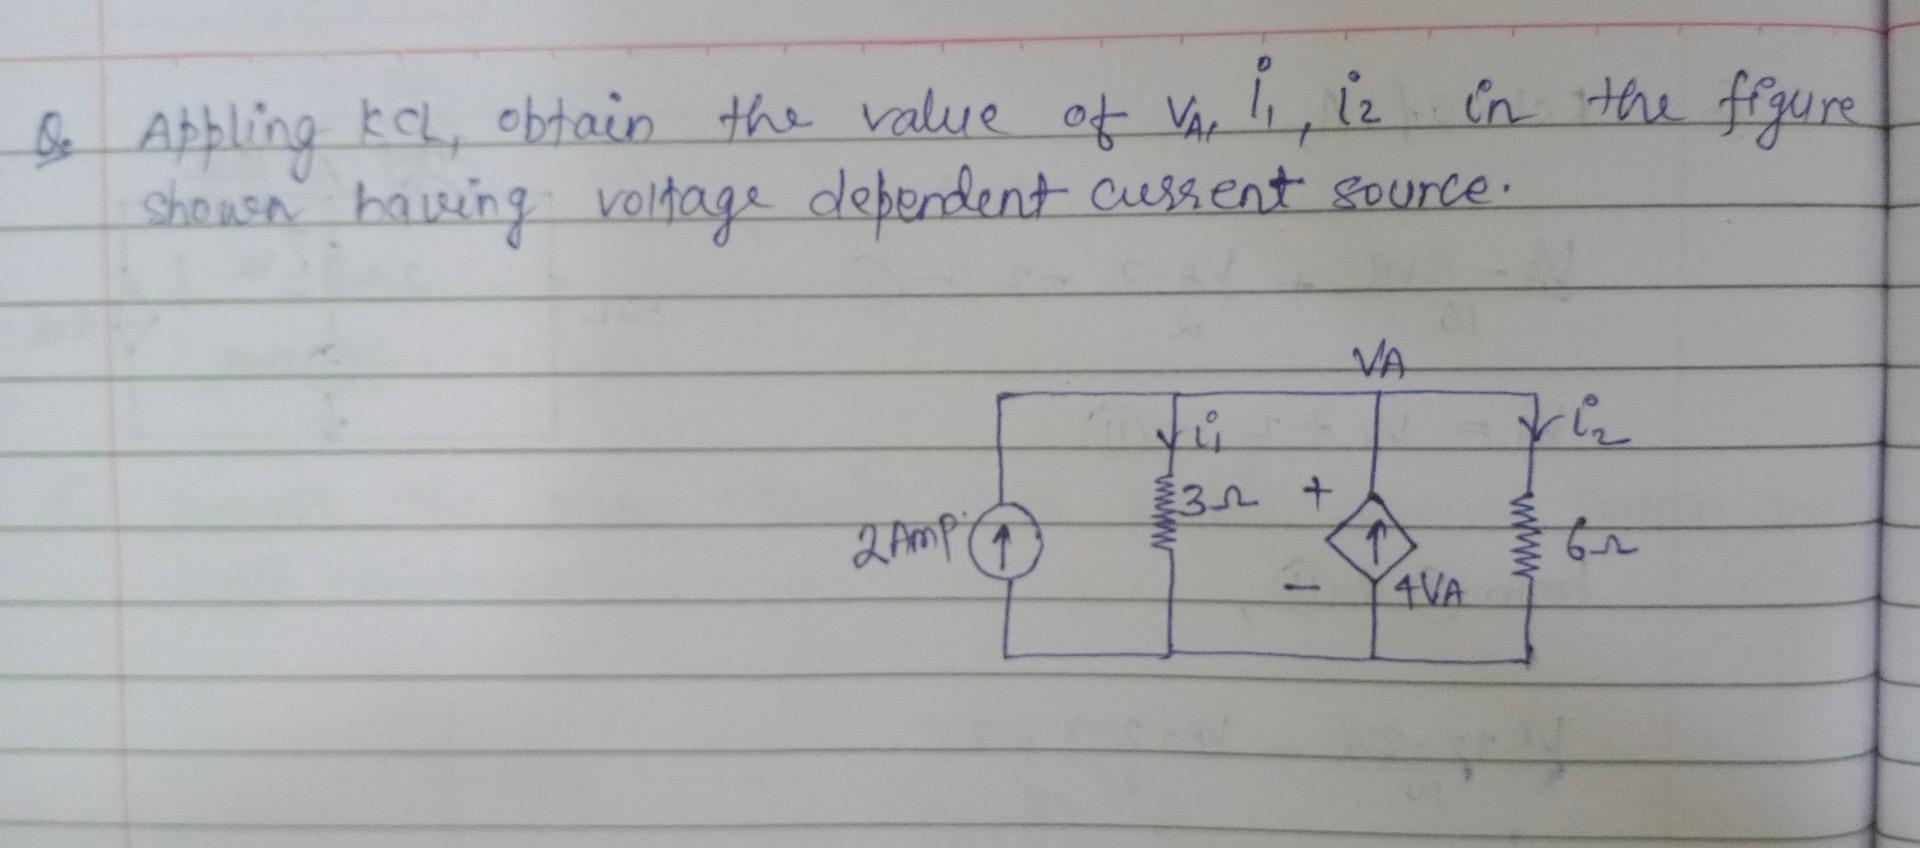 Q. Appling KCL, obtain the value of VA, i1, i2 in the figure
shown having voltage dependent current source.
VA
i1
i2
3Ω
+
2Amp.
6Ω
-
4VA